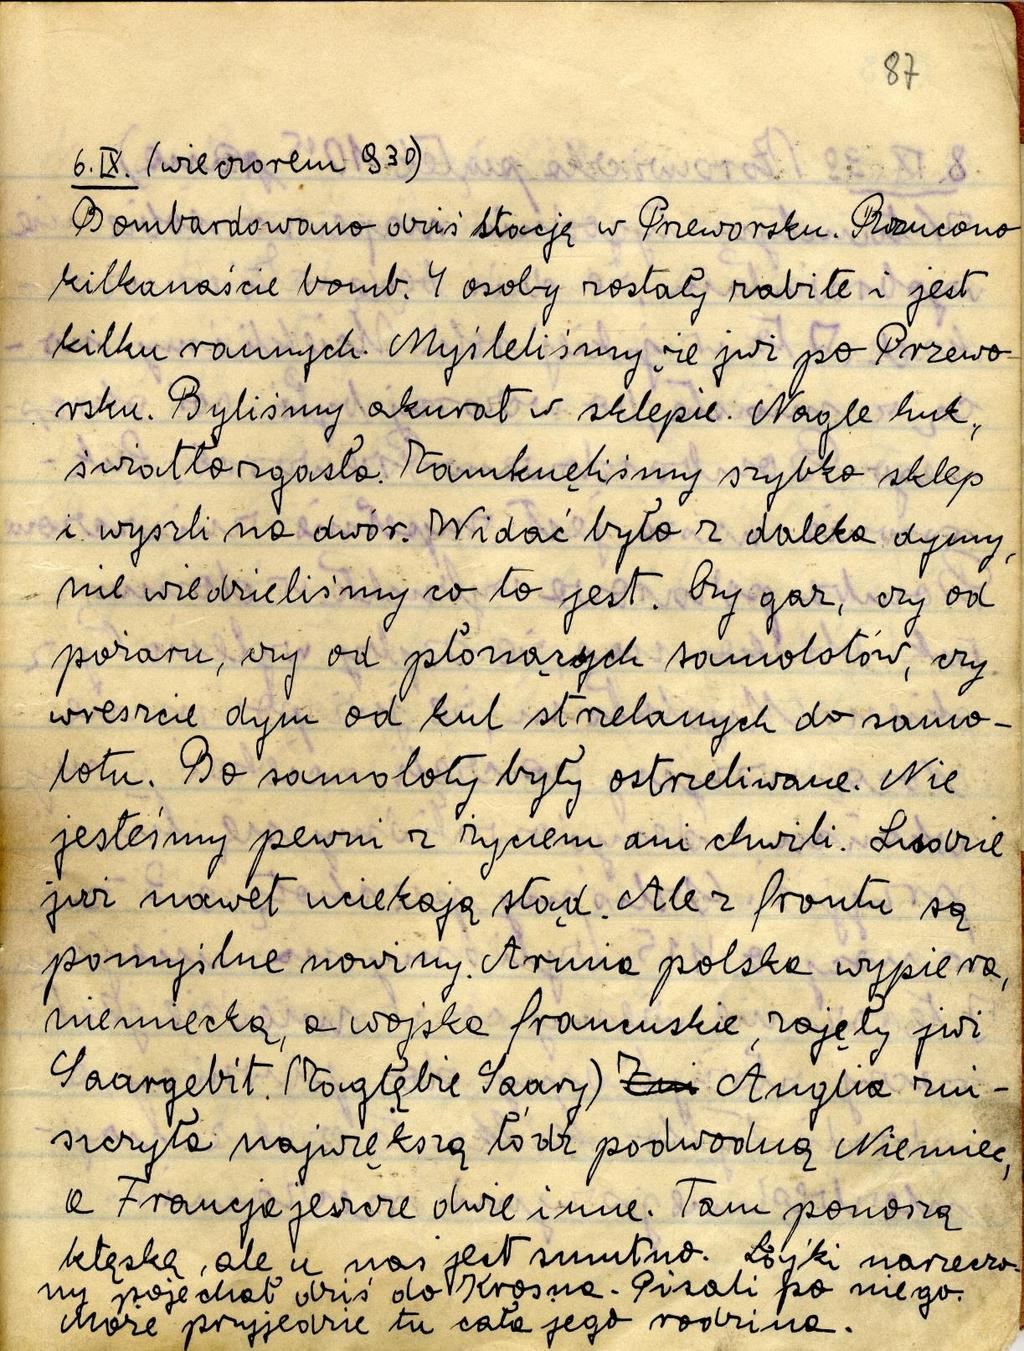 87
6.IX. (wieczorem 930)
Bombardowano dziś stację w Przeworsku. Rzucono
kilkanaście bomb. 4 osoby zostały zabite i jest
kilku rannych. Myśleliśmy, że już po Przewo-
rsku. Byliśmy akurat w sklepie. Nagle huk,
światło zgasło. Zamknęliśmy szybko sklep
i wyszli na dwór. Widać było z daleka dymy,
nie wiedzieliśmy co to jest. Czy gaz, czy od
pożaru, czy od płonących samolotów, czy
wreszcie dym od kul strzelanych do samo-
lotu. Bo samoloty były ostrzeliwane. Nie
jesteśmy pewni z życiem ani chwili. Ludzie
już nawet uciekają stąd. Ale z frontu są
pomyślne nowiny. Armia polska wypiera,
niemiecką, a wojska francuskie, zajęły już
Saargebit. (Zagłębie Saary) Zni Anglia zni-
szczyła największą łódź podwodną Niemiec,
a Francja jeszcze dwie inne. Tam ponoszą
klęskę, ale u nas jest smutno. Lojki narzeczo-
ny pojechał dziś do Krosna. Pisali po niego.
Może przyjedzie tu cała jego rodzina.